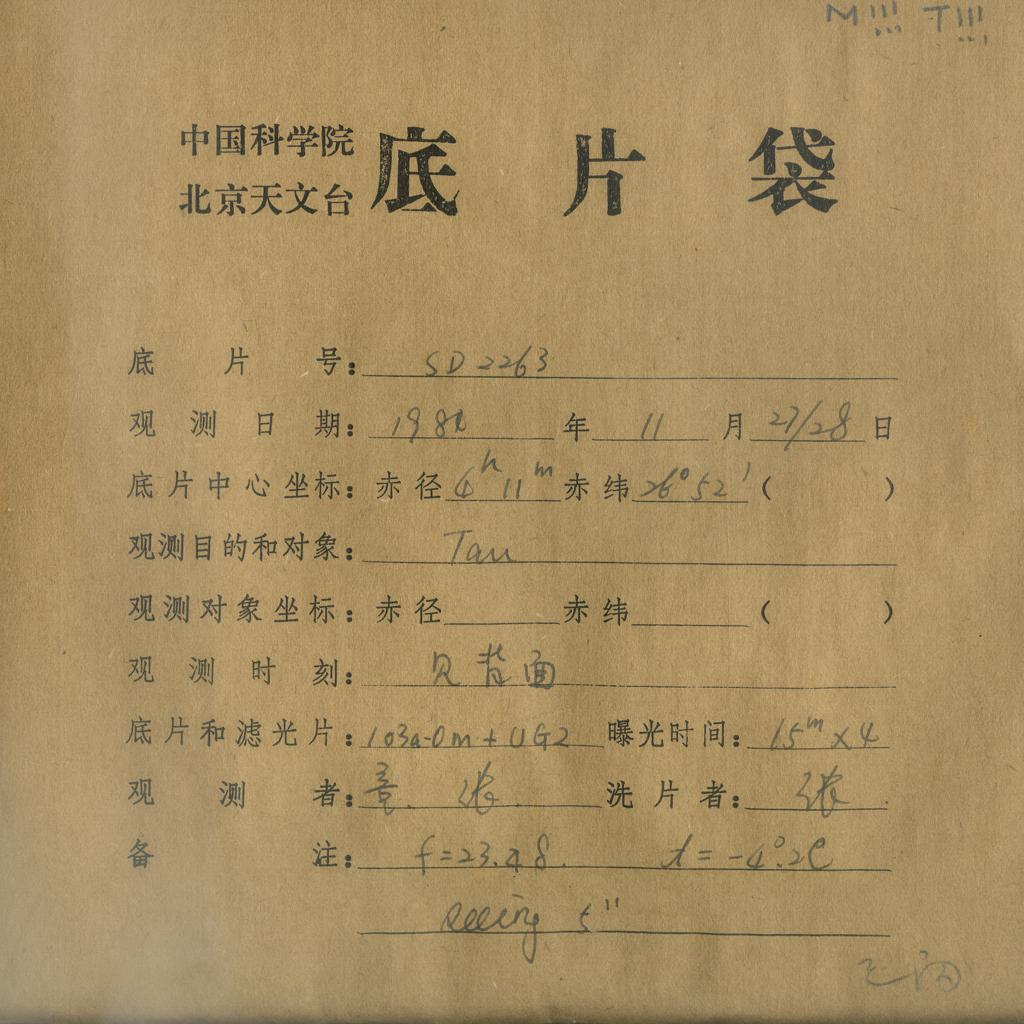 中国科学院
北京天文台 底片袋
底片号：SD 2263
观测日期：198 年 11 月 27/28 日
底片中心坐标：赤径 4h 11m 赤纬 26° 52′ ( )
观测目的和对象：Tau
观测对象坐标：赤径 赤纬 ( )
观测时刻：见背面
底片和滤光片：103a-Om + UG2 曝光时间：15m × 4
观测者：张. 洗片者：张.
备注：f = 23.48. t = -4°.2C
seeing 5″